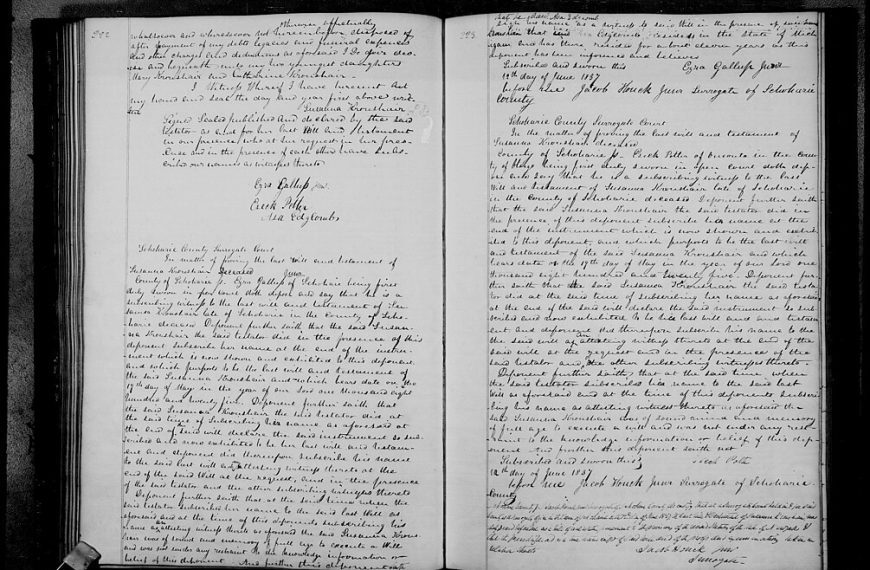 202
otherwise effectually
whatsoever and wheresoever not hereinbefore disposed of
after payment of my debts legacies and funeral expenses
and other charges and deductions as aforesaid I do give dev-
ise and bequeath unto my two youngest daughters
Mary Kronshair and Catharine Kronshair.
I Witness Whereof I have hereunto set
my hand and seal the day and year first above writ-
ten
Susanna Kronshair
Signed Sealed published and declared by the said
testator as and for her last Will and Testament
in our presence who at her request in her pres-
ence and in the presence of each other have subs-
cribed our names as witnesses thereto
Ezra Gallup Jun.
Erick Potter
Asa Edgcombs
Schoharie County Surrogate Court
In matter of proving the last Will and testament of
Susanna Kronshair deceased
County of Schoharie Ezra Gallup Junr of Schoharie being first
duly sworn in open Court doth depose and say that he is a
subscribing witness to the last will and testament of Su-
sanna Kronshair late of Schoharie in the County of Scho-
harie deceased Deponent further saith that the said Susan-
na Kronshair the said testator did in the presence of this
deponent subscribe her name at the end of the instru-
ment which is now shown and exhibited to this deponent
and which purports to be the last will and testament of
the said Susanna Kronshair and which bears date on the
17th day of May in the year of our Lord one thousand eight
hundred and twenty five. Deponent further saith that
the said Susanna Kronshair the said testator did at
the said time of subscribing her name as aforesaid at
the end of said will declare the said instrument so sub-
scribed and now exhibited to be her last will and testam-
ent and deponent did thereupon subscribe his name
to the said last will as attesting witness thereto at the
end of the said Will at the request and in the presence
of the said testator and the other subscribing witnesses thereto
Deponent further saith that at the said time when the
said testator subscribed her name to the said last Will as
aforesaid and at the time of this deponents subscribing his
name as attesting witness thereto as aforesaid the said Susanna Krons-
hair was of sound mind memory of full age to execute a Will
and was not under any restraint to the knowledge information or
belief of this deponent And further this deponent saith
203
not he saw Asa Edgcomb
sign his name as a witness to said Will in the presence of said Susanna
Kronshair that said Asa Edgcomb resides in the State of Mich-
igan and has there resided for about eleven years as this
deponent has been informed and believes
Subscribed and sworn this Ezra Gallup Junr
12th day of June 1837
before me Jacob Houck Junr Surrogate of Schoharie
County
Schoharie County Surrogate Court
In the matter of proving the last will and testament of
Susanna Kronshair deceased
County of Schoharie ss. Erick Potter of Oneonta in the Coun-
ty of Otsego being first duly sworn in open Court doth dep-
ose and say that he is a subscribing witness to the last
Will and testament of Susanna Kronshair late of Schoharie
in the County of Schoharie deceased Deponent further saith
that the said Susanna Kronshair the said testator did in
the presence of this deponent subscribe her name at the
end of the instrument which is now shown and exhib-
ited to this deponent and which purports to be the last will
and testament of the said Susanna Kronshair and which
bears date on the 17th day of May in the year of our Lord one
thousand eight hundred and twenty five. Deponent fur-
ther saith that the said Susanna Kronshair the said testa-
tor did at the said time of subscribing her name as aforesaid
at the end of the said will declare the said instrument so sub-
scribed and now exhibited to be her last will and testam-
ent and deponent did thereupon subscribe his name to the
the said will as attesting witness thereto at the end of the
said will at the request and in the presence of the
said testator and the other subscribing witnesses thereto
Deponent further saith that at the said time when
the said testator subscribed her name to the said last
Will as aforesaid and at the time of this deponents subscri-
bing his name as attesting witness thereto as aforesaid the
said Susanna Kronshair was of sound mind and memory
of full age to execute a will and was not under any rest-
raint to the knowledge information or belief of this dep-
onent And further this deponent saith not
Subscribed and sworn this Erick Potter
12th day of June 1837
before me Jacob Houck Junr Surrogate of Schoharie
County
Jacob Houck Junr
Surrogate